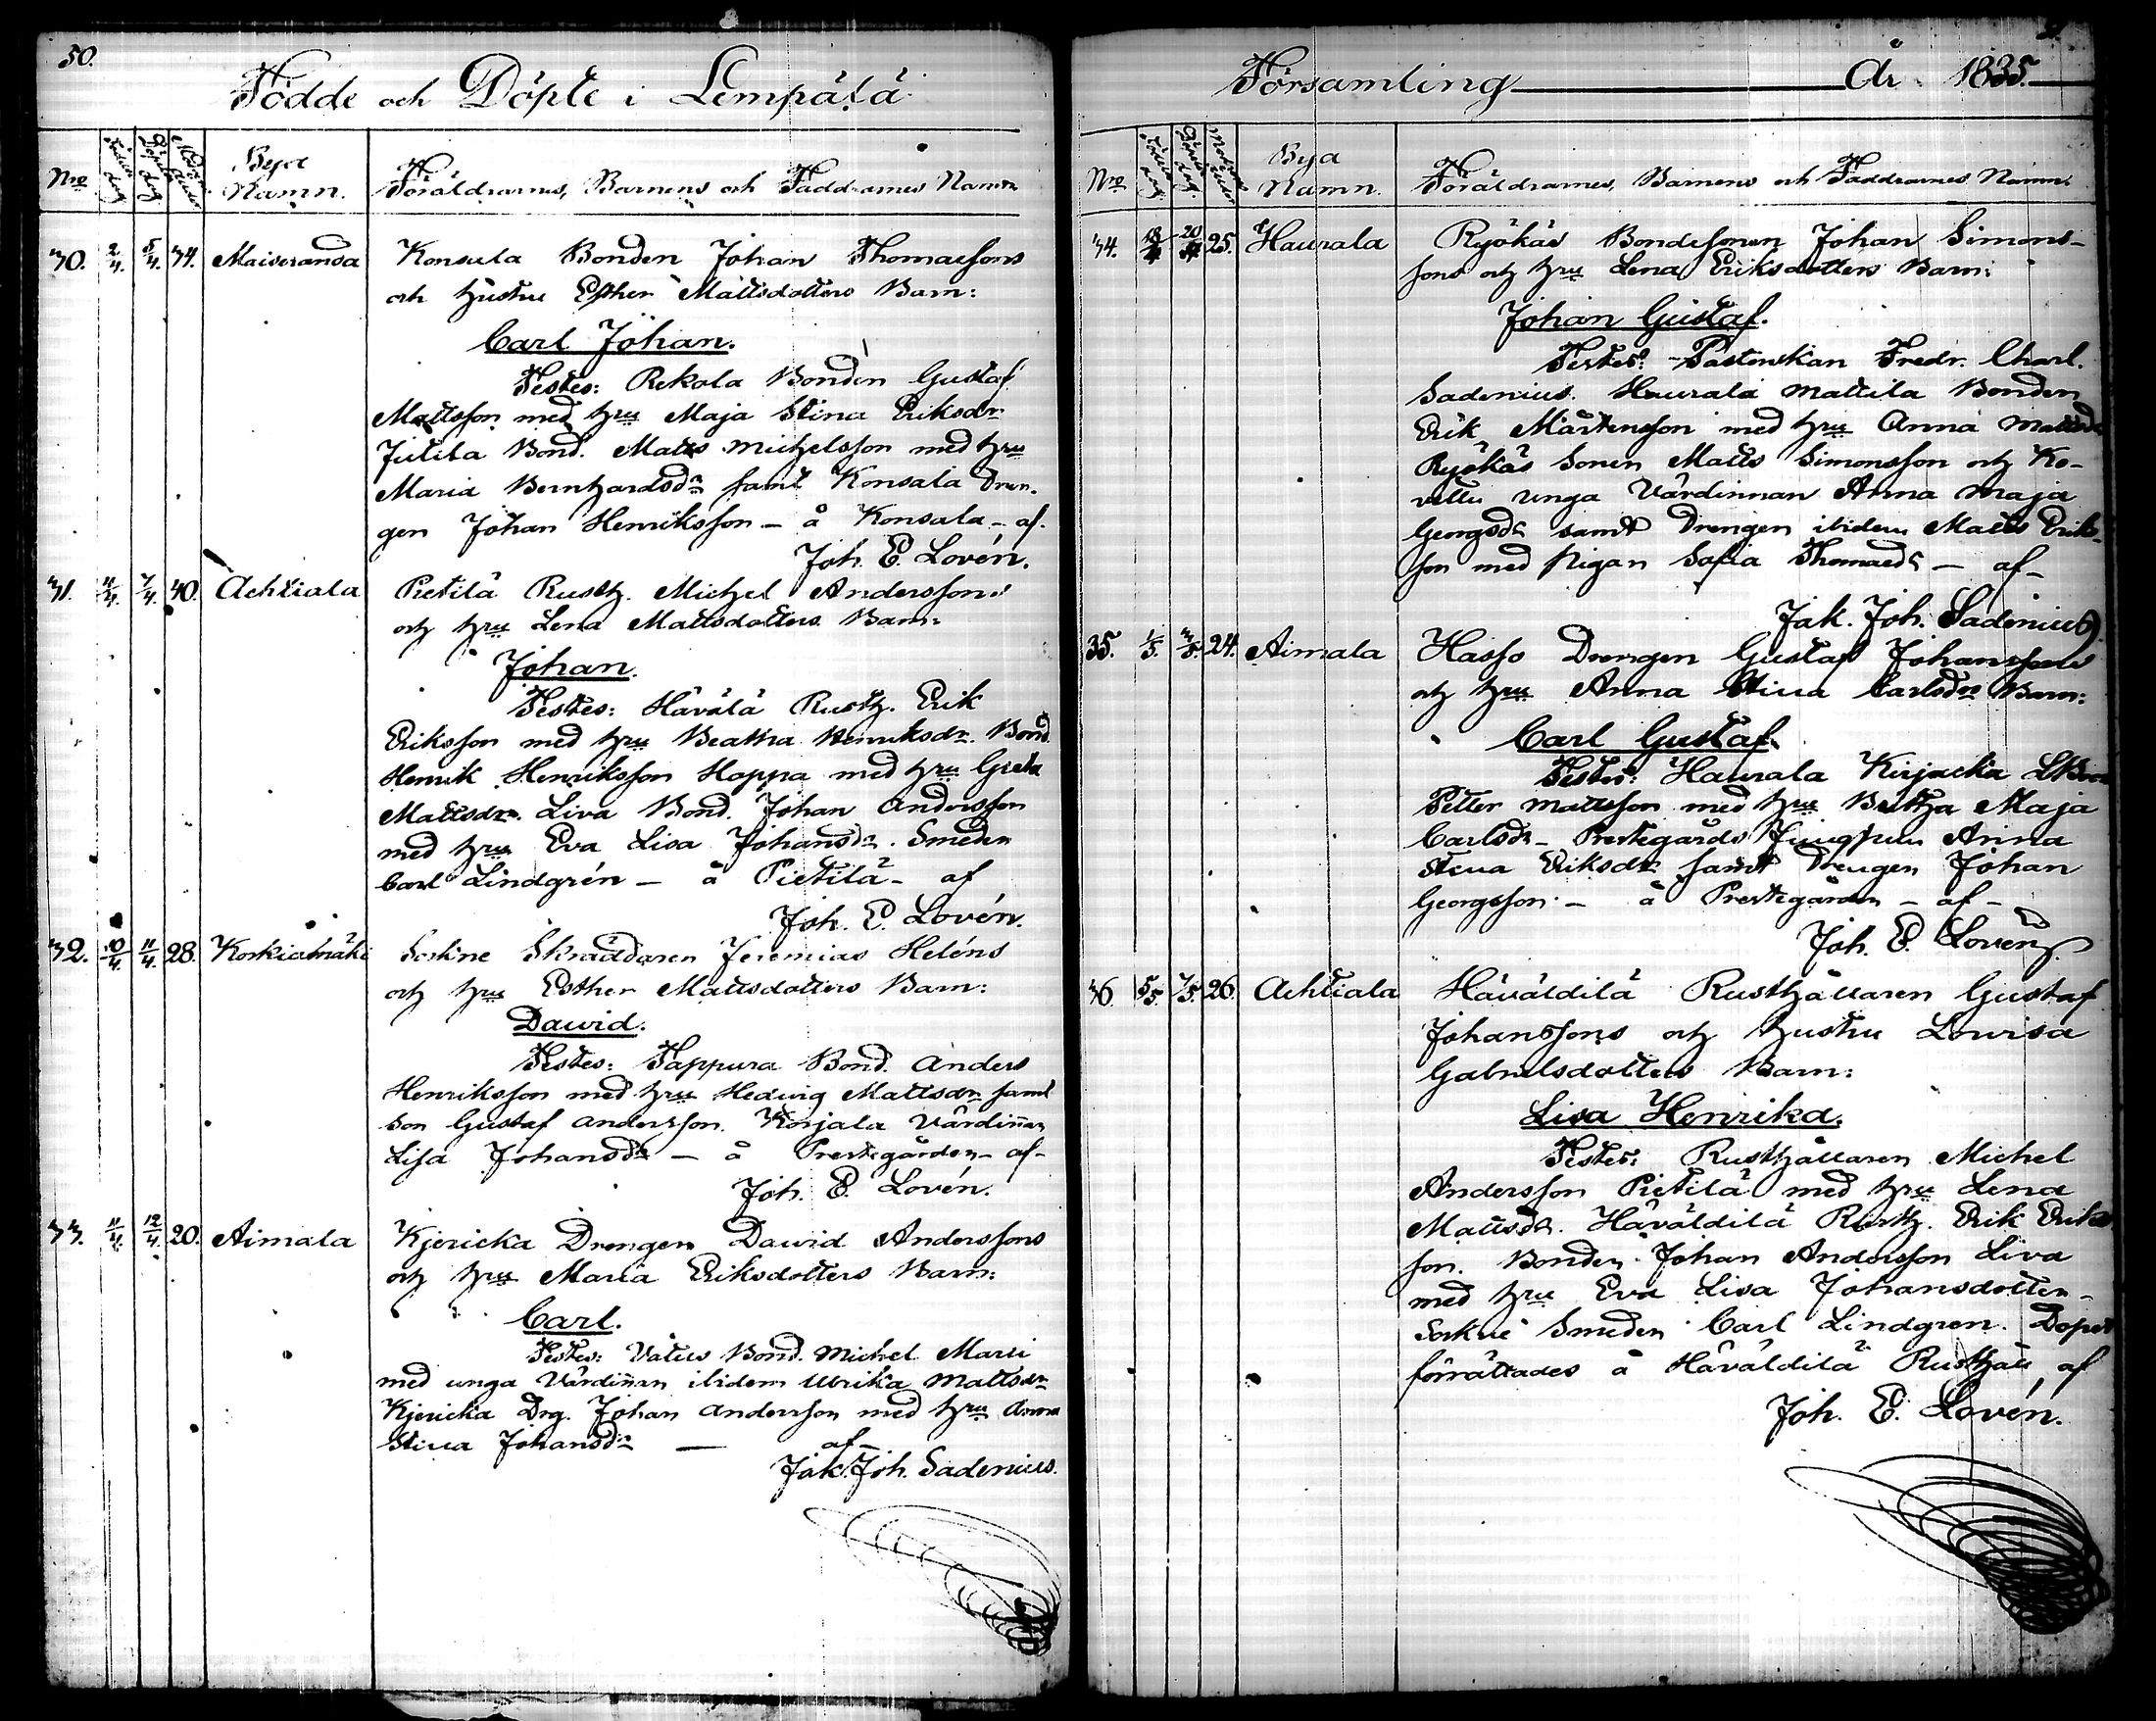 50.
Födde och Döpte i Lempälä
Nro Födelse dag Döpelse dag Byа Namn. Föräldrarnes, Barnens och Faddrarnes Namn
30. 2/4. 5/4. 34. Maiseranda Konsula Bonden Johan Thomassons
och hustru Esther Mattsdotters Barn:
Carl Johan.
Testes: Rekola Bonden Gustaf
Mattsson med hru Maja Stina Eriksdr
Jutila Bond. Matts Michelsson med hru
Maria Bernhardsdr samt Konsala Dren-
gen Johan Henriksson – å Konsala – af
Joh. E. Lovén.
31. 4/4. 7/4. 40. Achtiala Pietilä Rusth. Michel Anderssons
och hru Lena Mattsdotters Barn:
Johan.
Testes: Hävälä Rusth. Erik
Eriksson med hru Beatha Henriksdr. Bond
Henrik Henriksson Hoppa med hru Greta
Mattsdr. Liva Bond. Johan Andersson
med hru Eva Lisa Johansdr. Smeden
Carl Lindgrén – å Pietilä – af
Joh. E. Lovén.
32. 10/4. 11/4. 28. Korkiamäki Sockne Skräddaren Jeremias Heléns
och hru Esther Mattsdotters Barn:
Dawid.
Testes: Tappura Bond. Anders
Henriksson med hru Hedvig Mattsdr samt
Son Gustaf Andersson. Korjala Värdinnan
Lisa Johansdr – å Prestegården – af –
Joh. E. Lovén.
33. 11/4. 12/4. 20. Aimala Kjericka Drengen Dawid Anderssons
och hru Maria Eriksdotters Barn:
Carl.
Testes: Bond. Michel
med unga Värdinnan ibidem Ulrika Mattsdr
Kjericka Drg. Johan Andersson med hru Anna
Stina Johansdr — af –
Jak. Joh. Sadenius.
Församling År 1835.
Nro Födelse dag Döpelse dag Bya Namn. Föräldrarnes, Barnens och Faddrarnes Namn.
34. 18/4 20/4 25. Haurala Ryökäs Bondesonen Johan Simons-
sons och hru Lena Eriksdotters Barn:
Johan Gustaf.
Testes: Pastorskan Fredr. Charl.
Sadenius. Haurala Mattila Bonden
Erik Mårtensson med hru Anna Mattsd
Ryökäs Sonen Matts Simonsson och Ko-
vettu unga Värdinnan Anna Maja
Georgsdr samt Drengen ibidem Matts Eriks-
son med Pigan Sofia Thomasdr – af –
Jak. Joh. Sadenius.
35. 1/5. 3/5. 24. Aimala Hasso Drengen Gustaf Johanssons
och hru Anna Stina Carlsdrs Barn:
Carl Gustaf.
Testes: Haurala Kirjacka
Petter Mattsson med hru Beatha Maja
Carlsdr – Prestegårds Jungfrun Anna
Stina Eriksdr samt Drengen Johan
Georgsson – å Prestegården – af –
Joh. E. Lovén.
36. 5/5. 7/5. 26. Achtiala Häväldilä Rusthållaren Gustaf
Johanssons och hustru Lovisa
Gabrielsdotters Barn:
Lisa Henrika.
Testes: Rusthållaren Michel
Andersson Pietilä med hru Lena
Mattsdr. Häväldilä Rusth. Erik Eriks
son. Bonden Johan Andersson Liva
med hru Eva Lisa Johansdotter –
Sockne Smeden Carl Lindgren. Dopet
förrättades å Häväldilä Rusthåll af
Joh. E. Lovén.